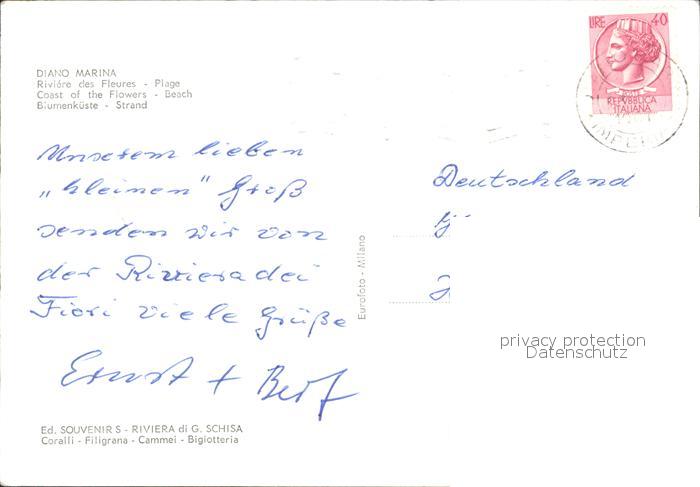 DIANO MARINA
Riviére des Fleures - Plage
Coast of the Flowers - Beach
Blumenküste - Strand
LIRE 40
POSTE
REPVBBLICA
ITALIANA
IMPERIA
Unserem lieben
„kleinen" Groß
senden wir von
der Riviera dei
Fiori viele Grüße
Ernst +
Deutschland
Eurofoto - Milano
privacy protection
Datenschutz
Ed. SOUVENIRS - RIVIERA di G. SCHISA
Coralli - Filigrana - Cammei - Bigiotteria